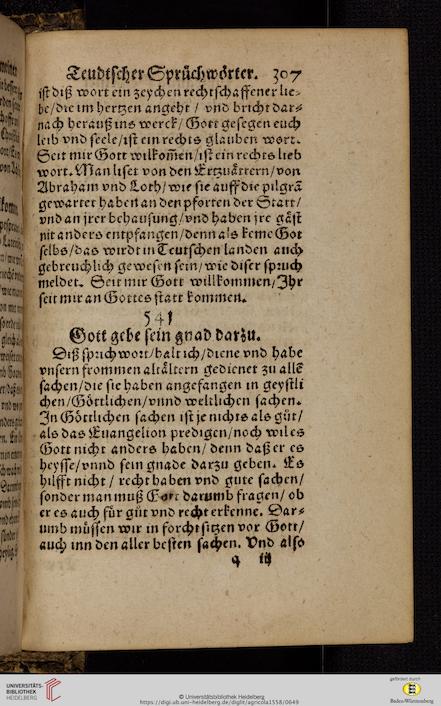 Teudtscher Sprüchwörter. 307
ist diß wort ein zeychen rechtschaffener lie⸗
be/die im hertzen angeht / vnd bricht dar⸗
nach herauß ins werck/ Gott gesegen euch
leib vnd seele/ist ein rechts glauben wort.
Seit mir Gott wilkom̃en/ist ein rechts lieb
wort. Man liset von den Ertzuättern/von
Abraham vnd Loth/ wie sie auff die pilgrã
gewartet haben an den pforten der Statt/
vnd an jrer behausung/vnd haben jre gäst
nit anders entpfangen/denn als keme Got
selbs/das wirdt in Teutschen landen auch
gebreuchlich gewesen sein/wie diser spruch
meldet. Seit mir Gott willkommen/Jhr
seit mir an Gottes statt kommen.
541
Gott gebe sein gnad darzu.
Diß sprichwort/halt ich/diene vnd habe
vnsern frommen altältern gedienet zu allẽ
sachen/die sie haben angefangen in geystli
chen/Göttlichen/vnnd weltlichen sachen.
Jn Göttlichen sachen ist je nichts als güt/
als das Euangelion predigen/noch wil es
Gott nicht anders haben/ denn daß er es
heysse/vnnd sein gnade darzu geben. Es
hilfft nicht / recht haben vnd gute sachen/
sonder man muß Gott darumb fragen/ ob
er es auch für güt vnd recht erkenne. Dar⸗
umb müssen wir in forcht sitzen vor Gott/
auch inn den aller besten sachen. Vnd also
q iij
UNIVERSITÄTS-
BIBLIOTHEK
HEIDELBERG
© Universitätsbibliothek Heidelberg
https://digi.ub.uni-heidelberg.de/diglit/agricola1558/0649
gefördert durch
Baden-Württemberg